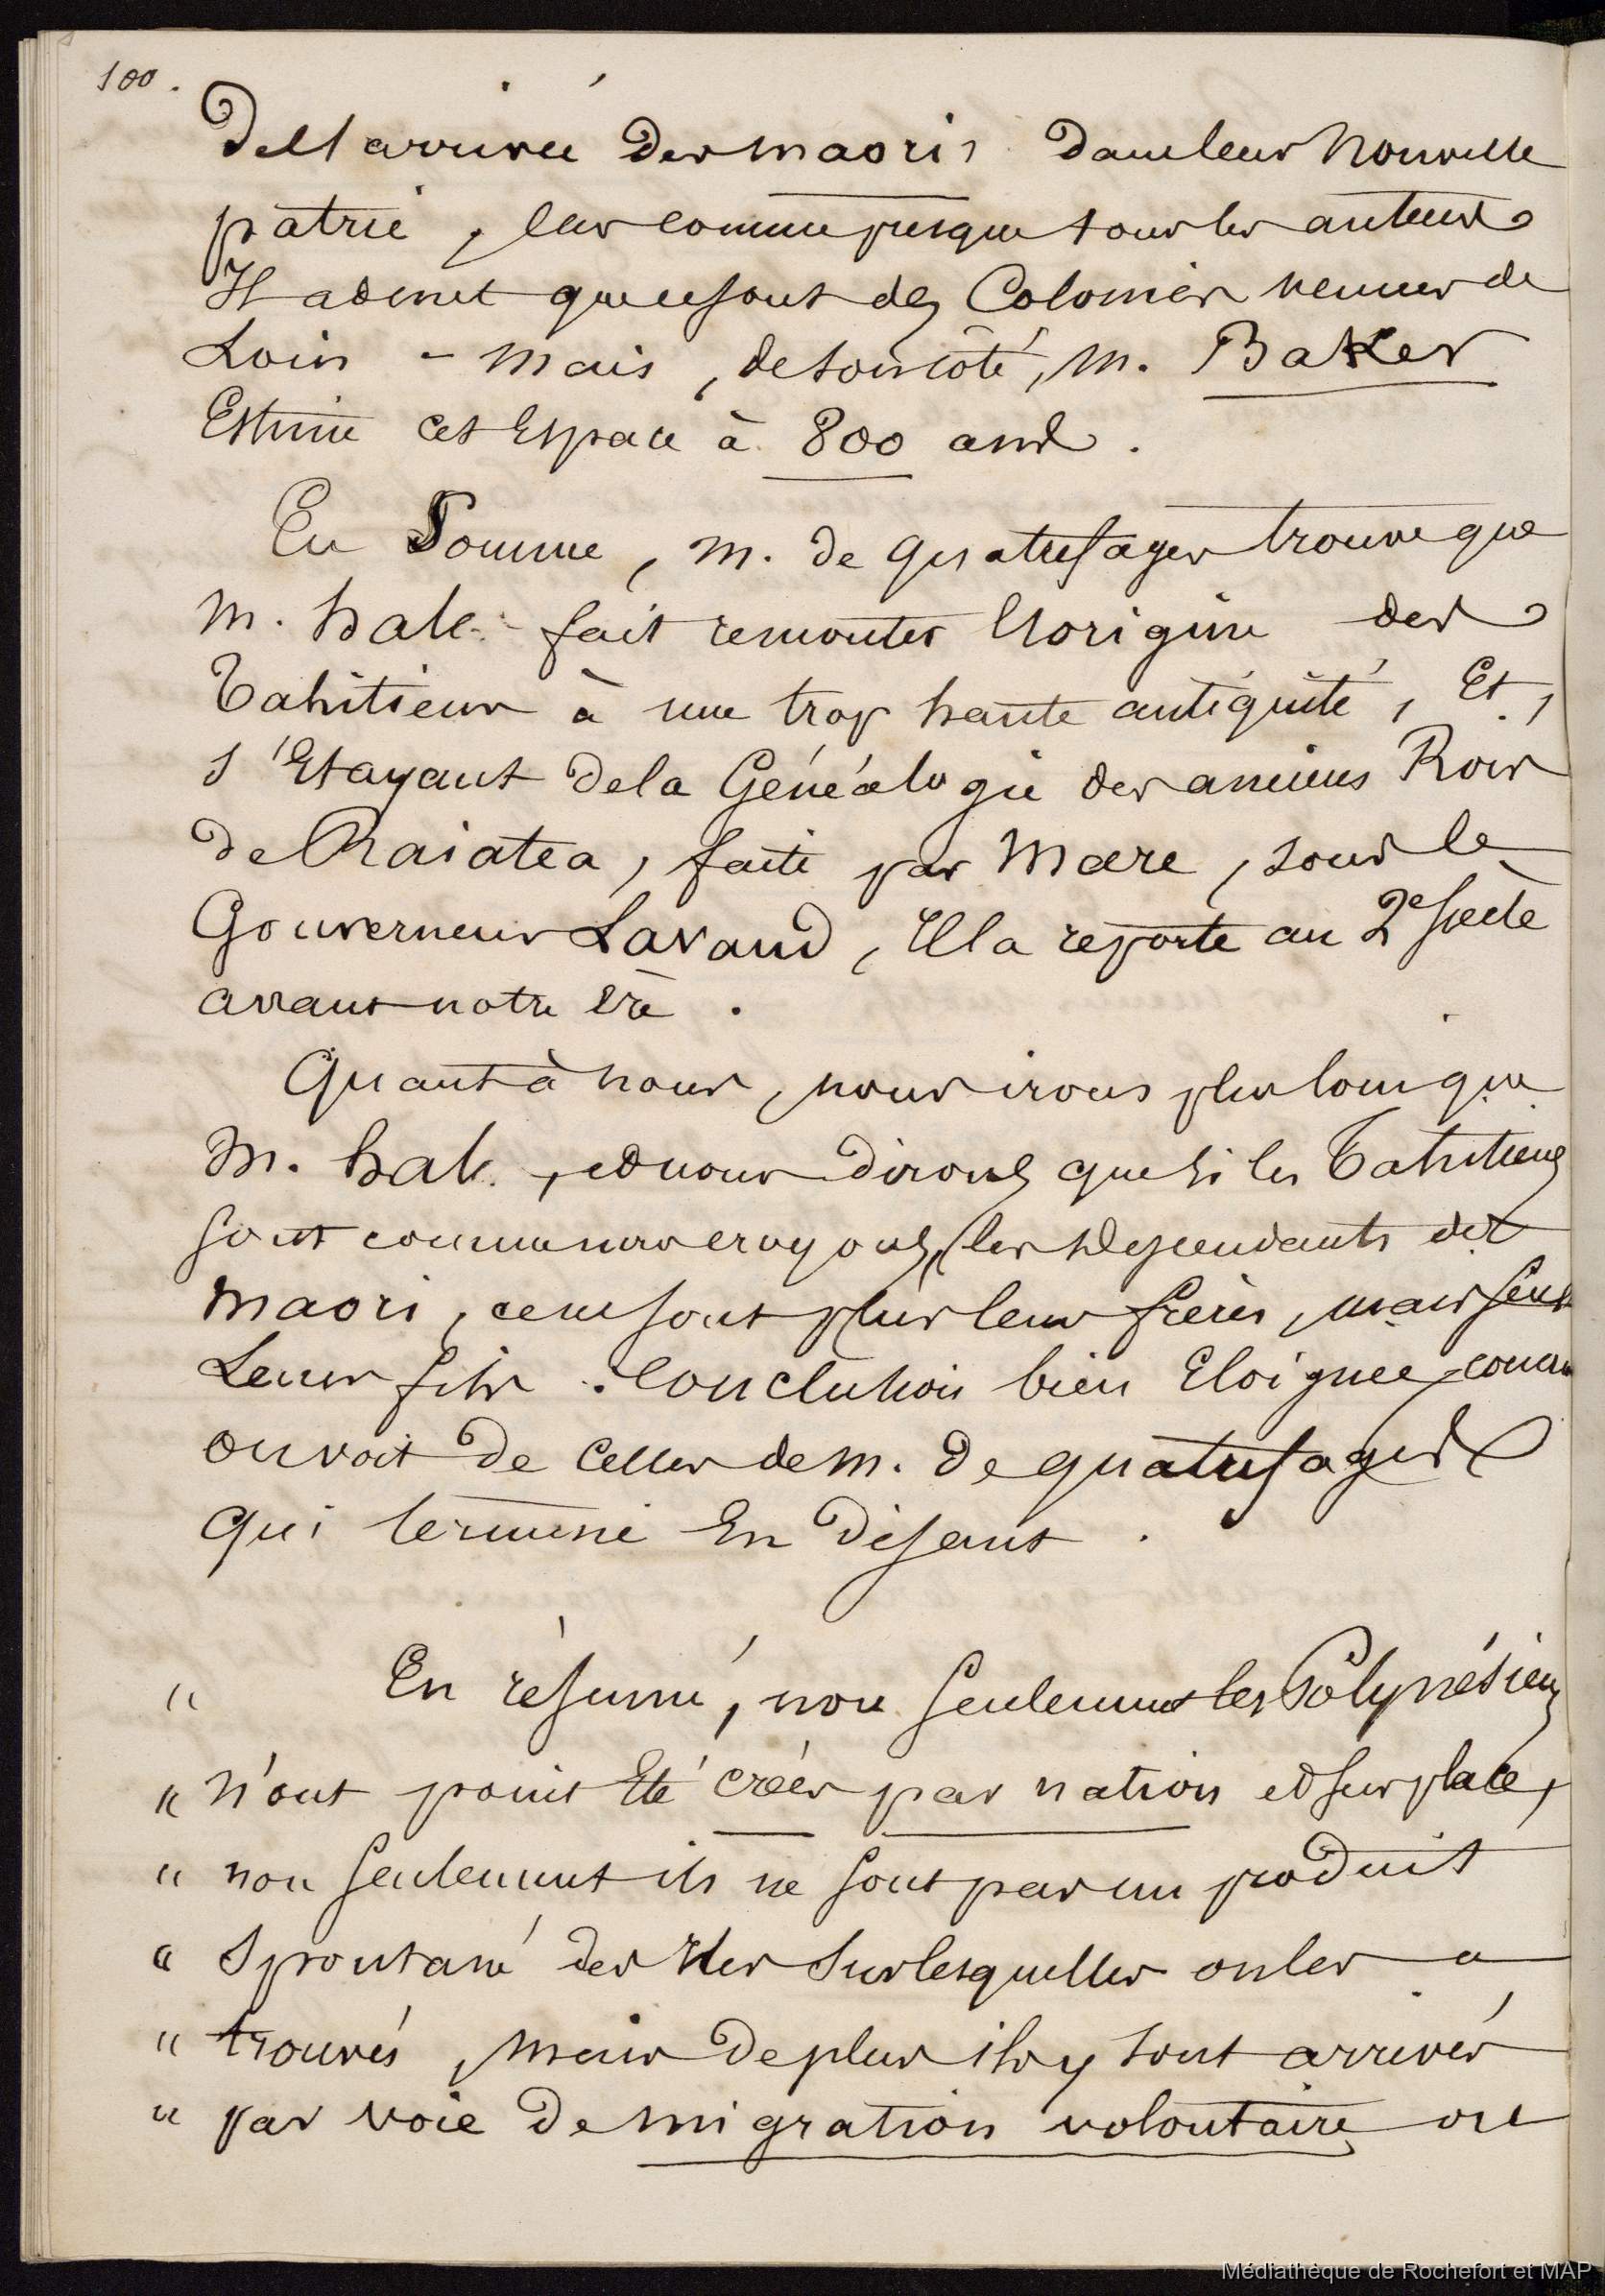 100.
De l'arrivée des maoris dans leur nouvelle
patrie, car comme presque tous les auteurs
Il admet que ce sont des Colonies venues de
Loin - mais, de son côté, M. Baker
Estime cet Espace à 800 ans.
En Somme, M. de quatrefages trouve que
M. hale fait remonter l'origine des
Tahitiens à une trop haute antiquité, Et,
s'Etayant de la Généalogie des anciens Rois
de Raiatea, faite par Mare, sous le
Gouverneur Lavaud, Il la reporte au 2e siècle
avant notre ère.
Quant à nous, nous irons plus loin que
M. hale, et nous dirons que si les Tahitiens
sont comme nous croyons, les descendants des
Maori, ce ne sont plus leurs frères, mais
Leurs fils. Conclusion bien Eloignée comme
on voit de Celles de M. de quatrefages
qui termine En disant.
" En résumé, non seulement les Polynésiens
" n'ont point Eté créés par nation et sur place,
" non seulement ils ne sont pas un produit
" Spontané des Iles sur lesquelles on les a
" trouvés, mais de plus ils y sont arrivés
" par voie de migration volontaire ou
Médiathèque de Rochefort et MAP